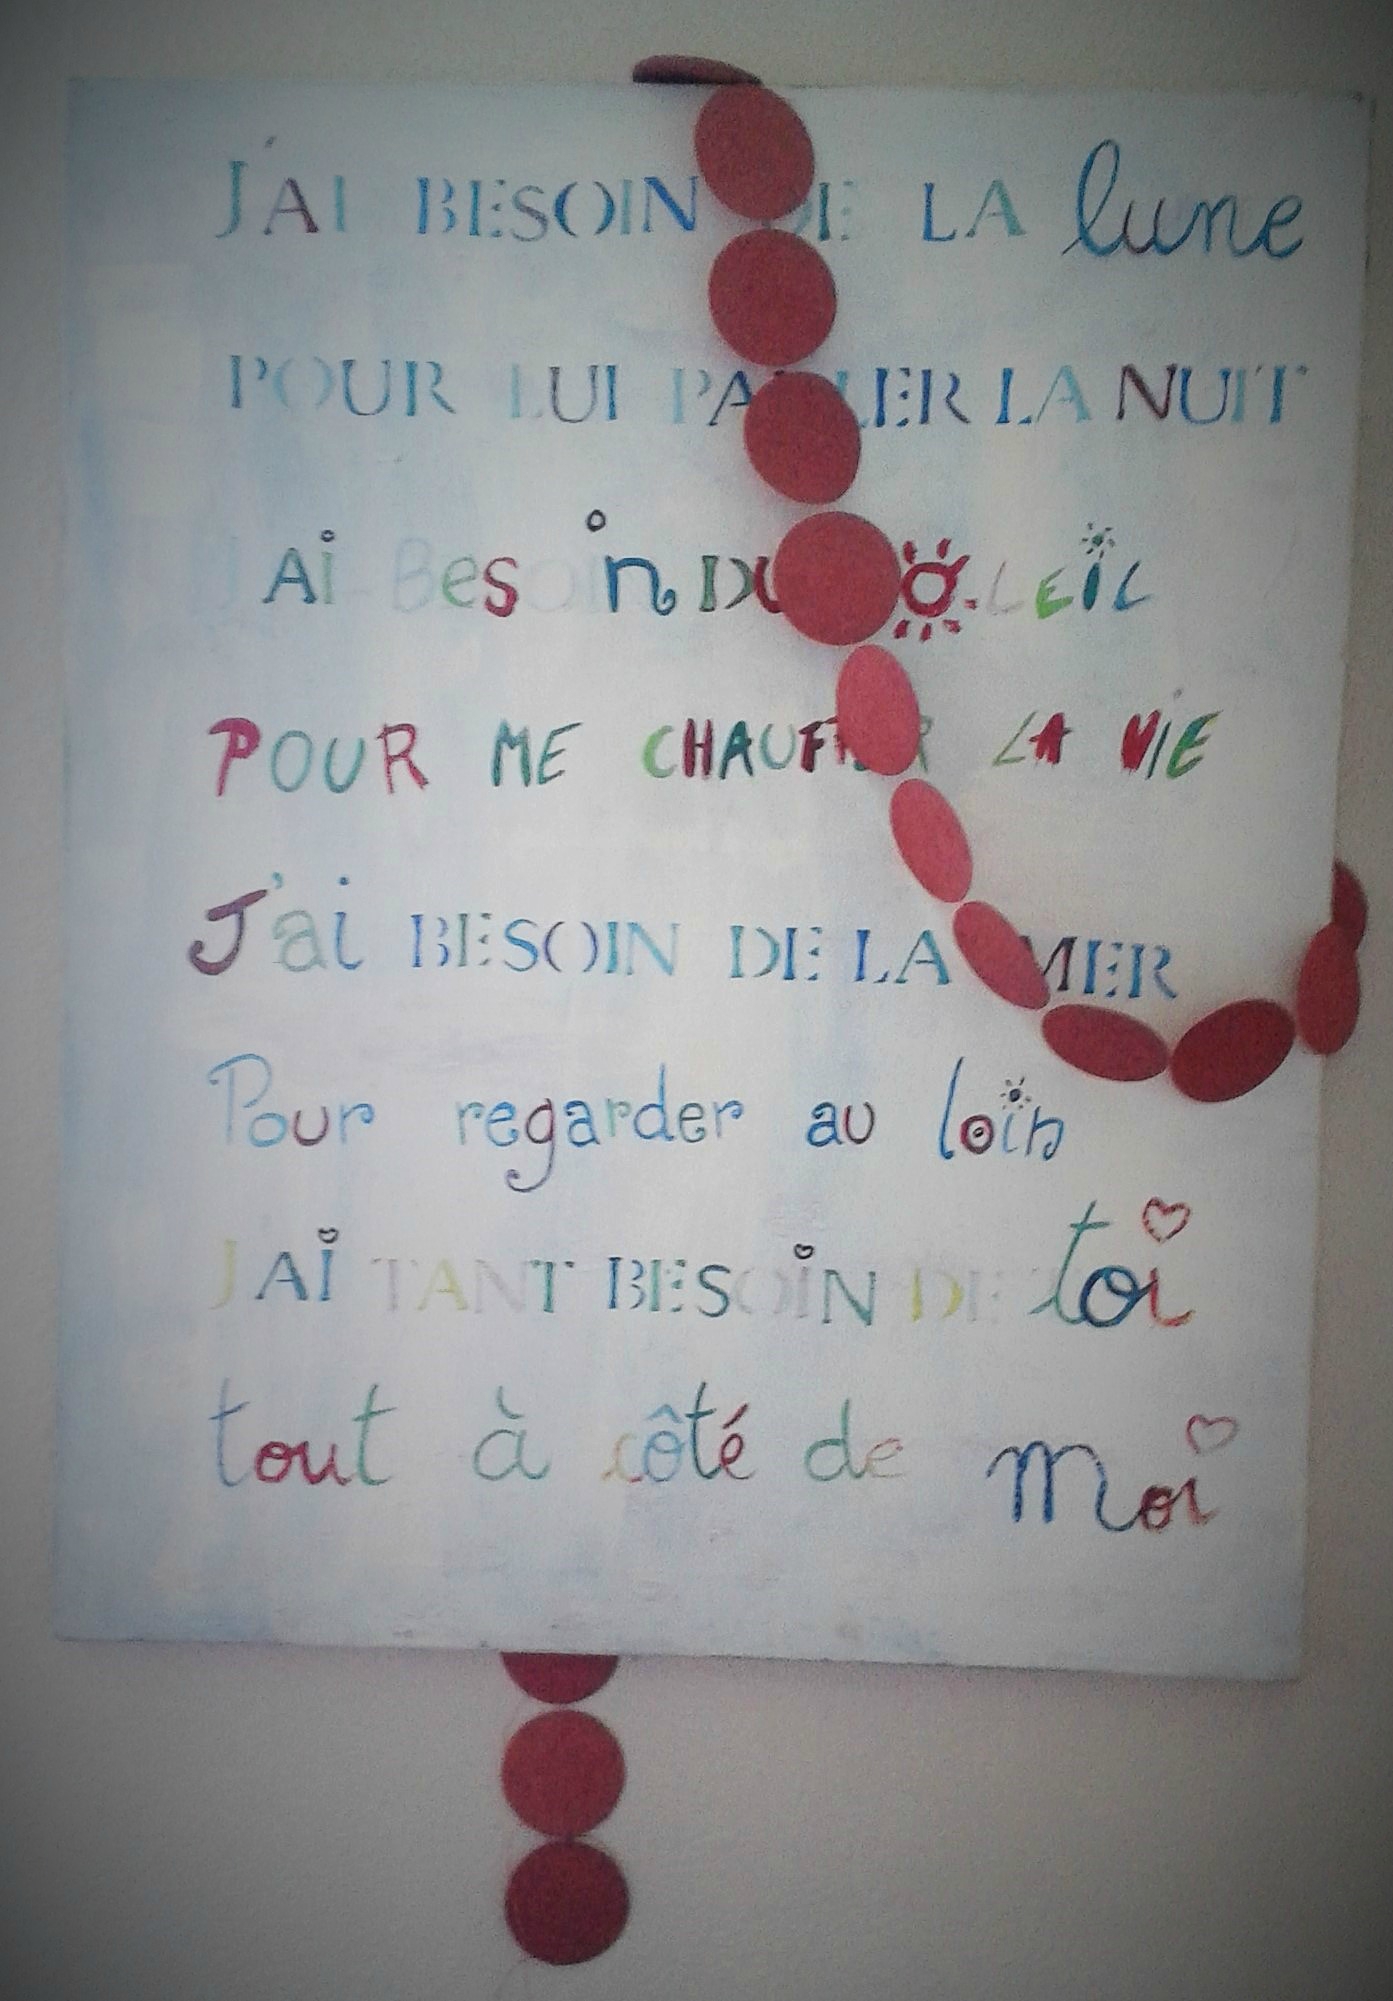 J'AI BESOIN DE LA lune
POUR LUI PARLER LA NUIT
J'Ai Besoin DU SOLEIL
POUR ME CHAUFFER LA ViE
J'ai BESOIN DE LA MER
Pour regarder au loin
J'Ai TANT BESOiN DE toi
tout à côté de moi